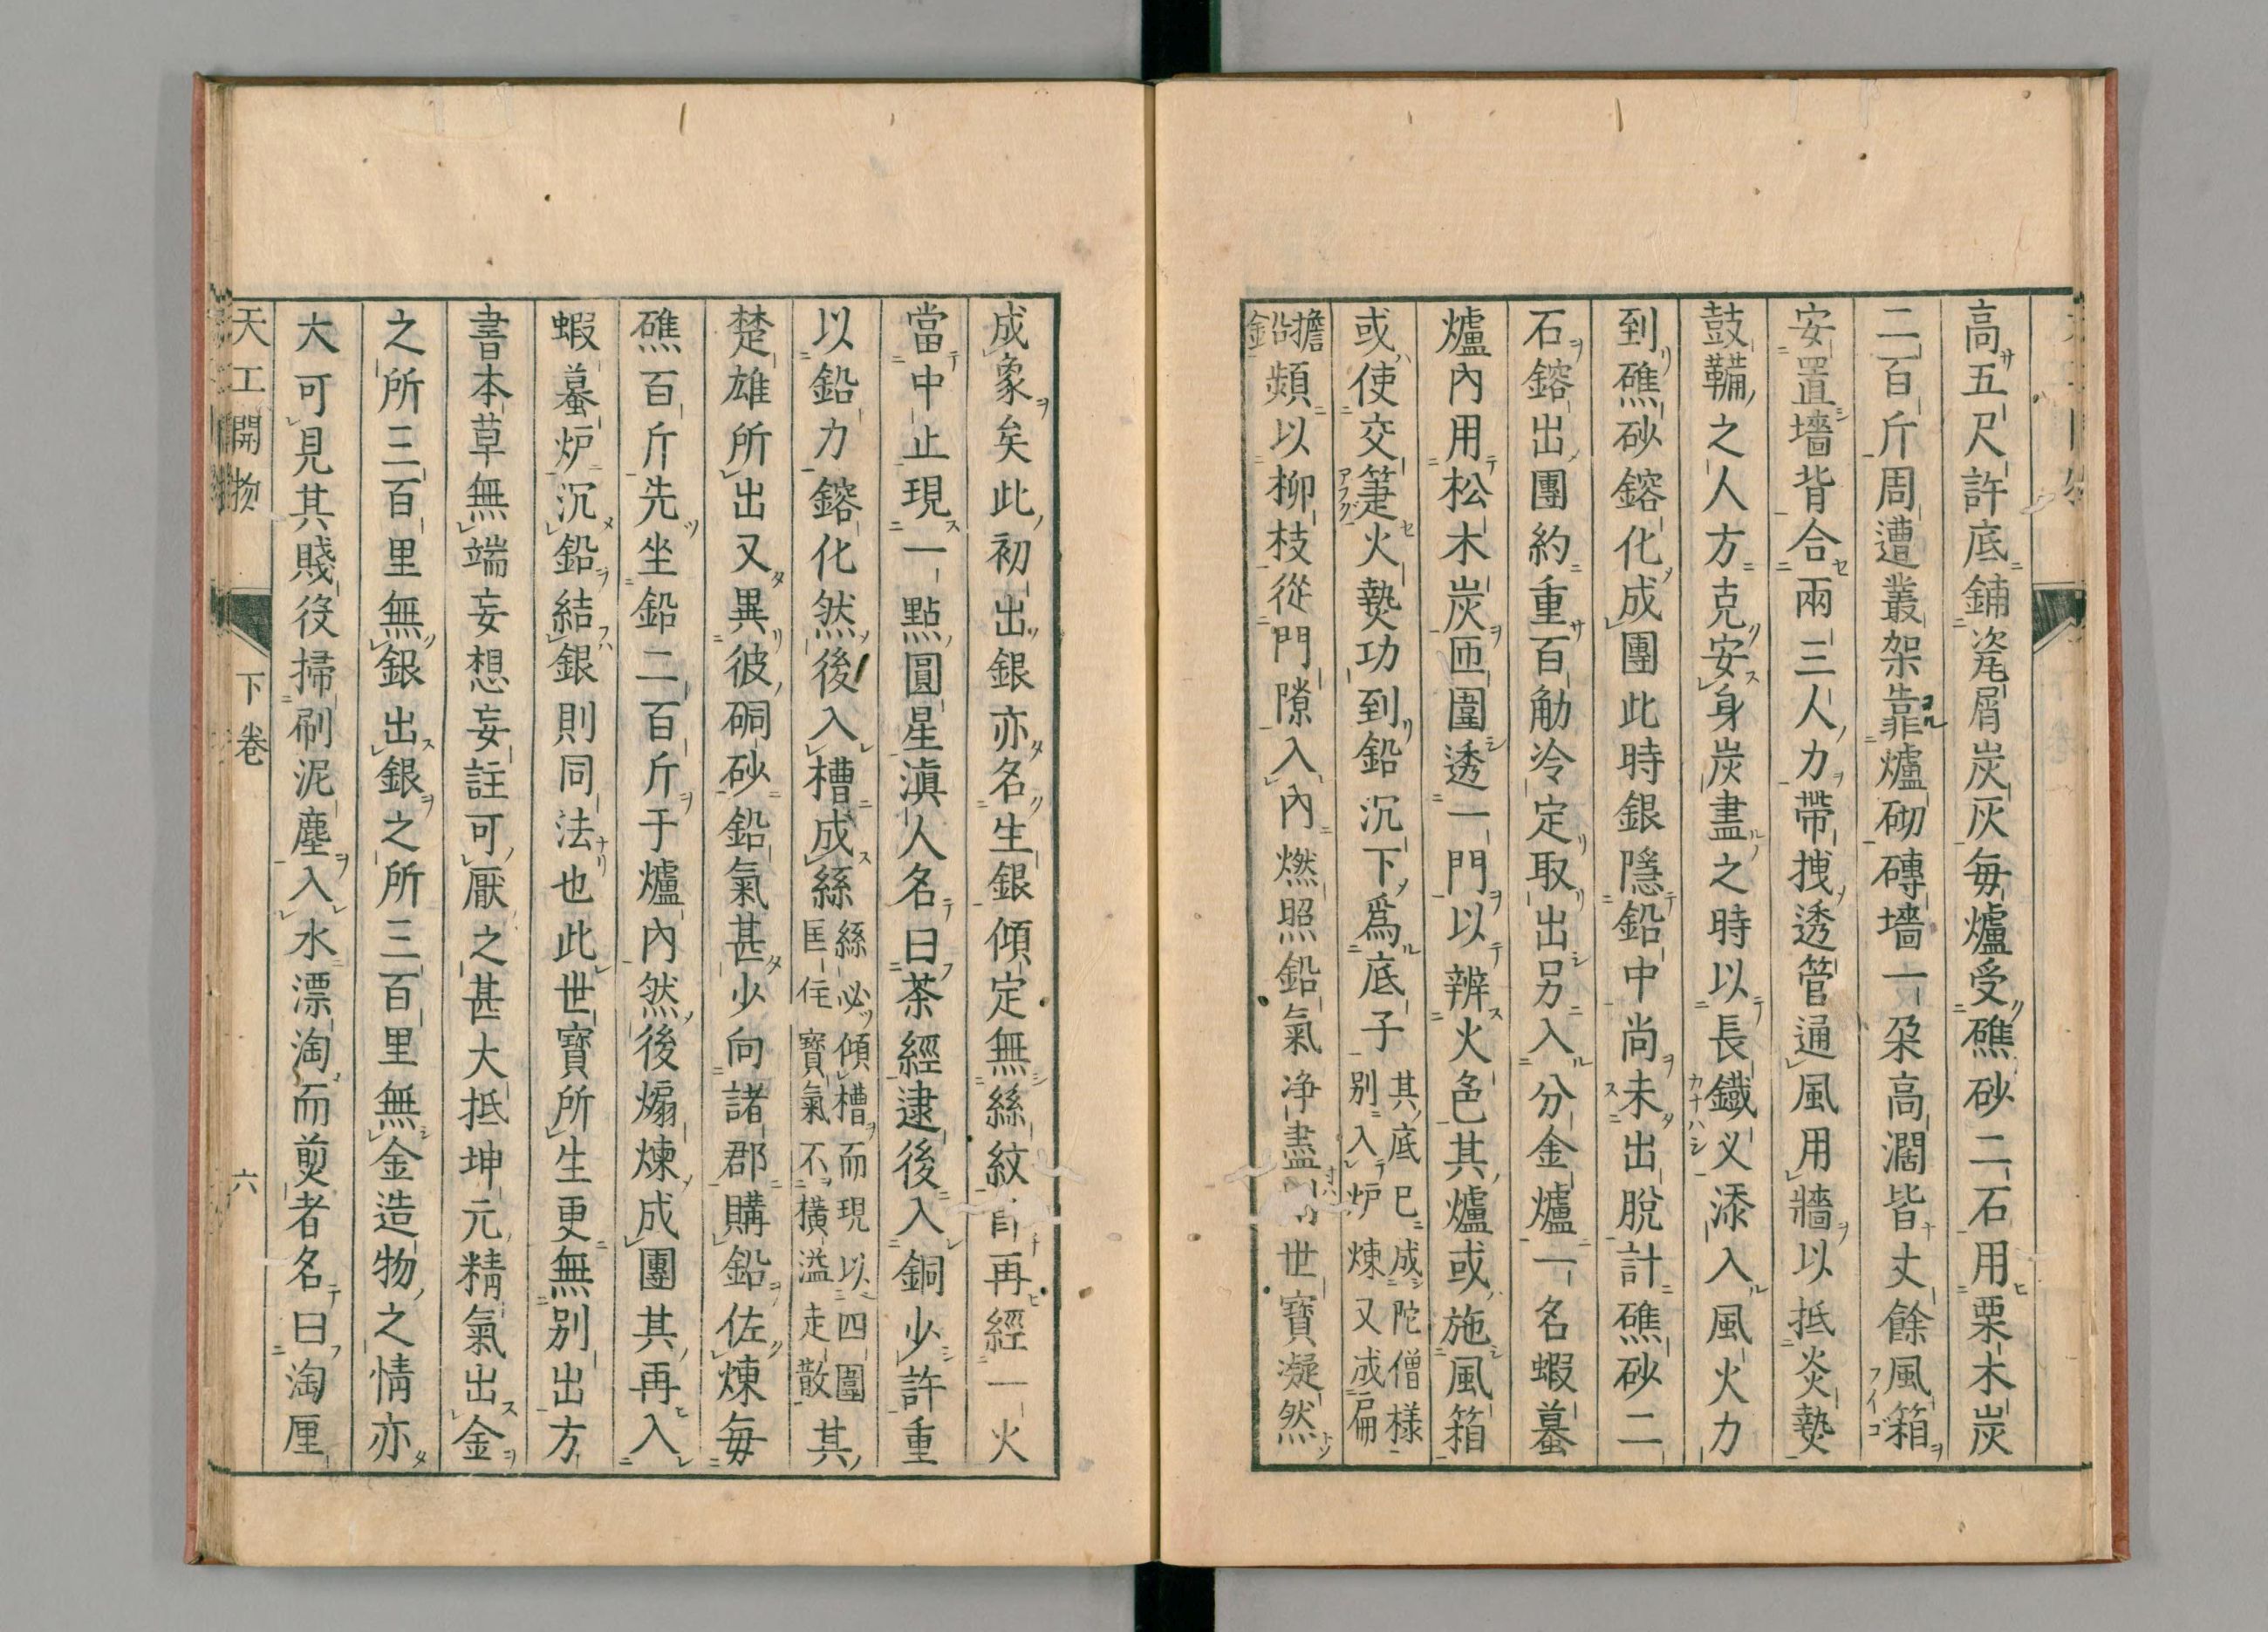 高五尺許底鋪瓷屑炭灰每爐受礁砂二石用栗木炭
二百斤周遭叢架靠爐砌磚墻一朶高濶皆丈餘風箱
安置墻背合兩三人力帶拽透管通風用牆以抵炎𤍠
鼓鞴之人方克安身炭盡之時以長鐵义添入風火力
到礁砂鎔化成團此時銀隱鉛中尚未出脫計礁砂二
石鎔出團約重百觔冷定取出另入分金爐一名蝦蟇
爐內用松木炭匝圍透一門以辨火色其爐或施風箱
或使交箑火𤍠功到鉛沉下爲底子其底已成陀僧樣
別入炉煉又成扁
擔鉛頻以柳枝從門隙入內燃照鉛氣净盡世寶凝然
成象矣此初出銀亦名生銀傾定無絲紋再經一火
當中止現一點圓星滇人名曰茶經逮後入銅少許重
以鉛力鎔化然後入槽成絲絲必傾槽而現以四圍
匡住寶氣不橫溢走散其
楚雄所出又異彼硐砂鉛氣甚少向諸郡購鉛佐煉每
礁百斤先坐鉛二百斤于爐內然後煽煉成團其再入
蝦蟇炉沉鉛結銀則同法也此世寶所生更無別出方
書本草無端妄想妄註可厭之甚大抵坤元精氣出金
之所三百里無銀出銀之所三百里無金造物之情亦
大可見其賤役掃刷泥塵入水漂淘而煎者名曰淘厘
天工開物 下卷 六